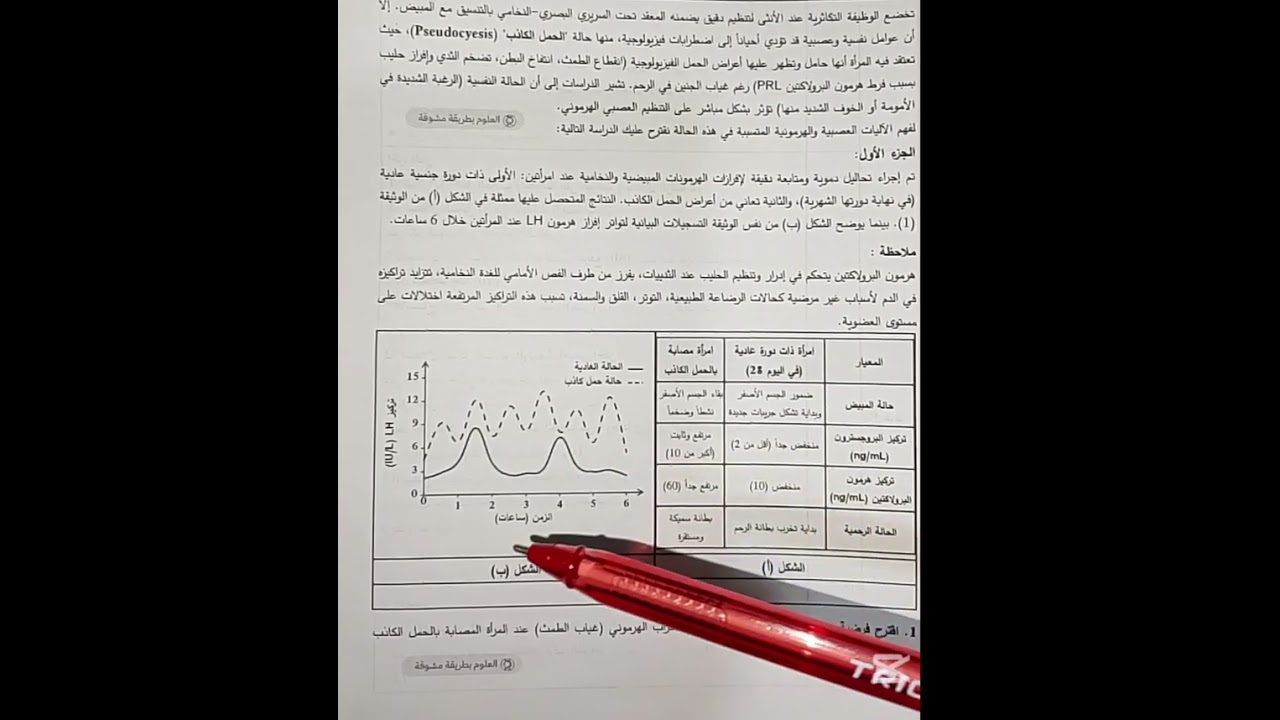 تخضع الوظيفة التكاثرية عند الأنثى لتنظيم دقيق يضمنه المعقد تحت السريري البصري-النخامي بالتنسيق مع المبيض. إلا
أن عوامل نفسية وعصبية قد تؤدي أحياناً إلى اضطرابات فيزيولوجية، منها حالة "الحمل الكاذب" (Pseudocyesis)، حيث
تعتقد فيه المرأة أنها حامل وتظهر عليها أعراض الحمل الفيزيولوجية (انقطاع الطمث، انتفاخ البطن، تضخم الثدي وإفراز حليب
بسبب فرط هرمون البرولاكتين PRL) رغم غياب الجنين في الرحم. تشير الدراسات إلى أن الحالة النفسية (الرغبة الشديدة في
الأمومة أو الخوف الشديد منها) تؤثر بشكل مباشر على التنظيم العصبي الهرموني.
العلوم بطريقة مشوقة
لفهم الآليات العصبية والهرمونية المتسببة في هذه الحالة نقترح عليك الدراسة التالية:
الجزء الأول:
تم إجراء تحاليل دموية ومتابعة دقيقة لإفرازات الهرمونات المبيضية والنخامية عند امرأتين: الأولى ذات دورة جنسية عادية
(في نهاية دورتها الشهرية)، والثانية تعاني من أعراض الحمل الكاذب. النتائج المتحصل عليها ممثلة في الشكل (أ) من الوثيقة
(1). بينما يوضح الشكل (ب) من نفس الوثيقة التسجيلات البيانية لتواتر إفراز هرمون LH عند المرأتين خلال 6 ساعات.
ملاحظة :
هرمون البرولاكتين يتحكم في إدرار وتنظيم الحليب عند الثدييات، يفرز من طرف الفص الأمامي للغدة النخامية، تتزايد تراكيزه
في الدم لأسباب غير مرضية كحالات الرضاعة الطبيعية، التوتر، القلق والسمنة، تسبب هذه التراكيز المرتفعة اختلالات على
مستوى العضوية.
المعيار
امرأة ذات دورة عادية
(في اليوم 28)
امرأة مصابة
بالحمل الكاذب
حالة المبيض
ضمور الجسم الأصفر
وبداية تشكل جريبات جديدة
بقاء الجسم الأصفر
نشطاً وضخماً
تركيز البروجسترون
(ng/mL)
منخفض جداً (أقل من 2)
مرتفع وثابت
(أكبر من 10)
تركيز هرمون
البرولاكتين (ng/mL)
منخفض (10)
مرتفع جداً (60)
الحالة الرحمية
بداية تخرب بطانة الرحم
بطانة سميكة
ومستقرة
الشكل (أ)
الحالة العادية
حالة حمل كاذب
تركيز LH (IU/L)
15
12
9
6
3
0
0 1 2 3 4 5 6
الزمن (ساعات)
الشكل (ب)
1. اقترح الهرموني (غياب الطمث) عند المرأة المصابة بالحمل الكاذب
العلوم بطريقة مشوقة